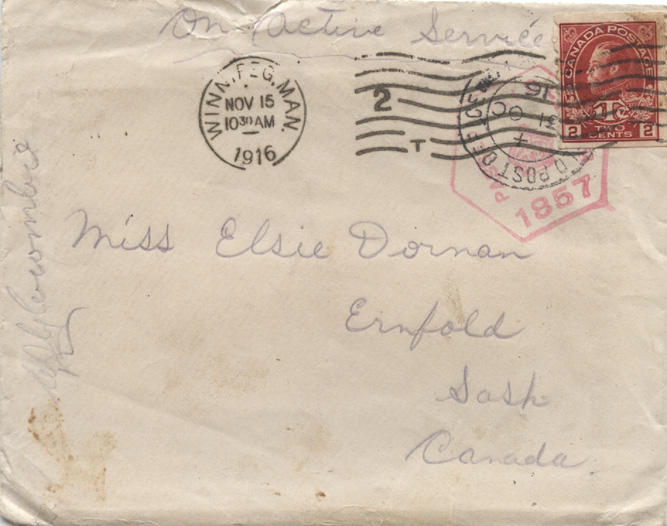 On Active Service
WINNIPEG, MAN
NOV 15
10 30 AM
1916
2
T
CANADA POSTAGE
1Tc
2 TWO CENTS 2
FIELD POST OFFICE
31 OC
16
PA
1857
Miss Elsie Dornan
Ernfold
Sask
Canada.